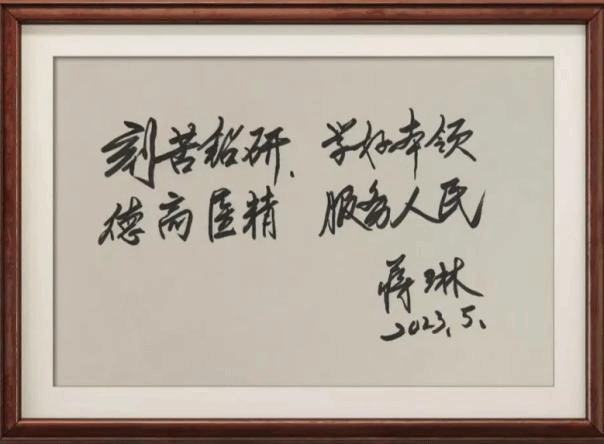 刻苦钻研、学好本领
德高医精 服务人民
蒋琳
2023.5.